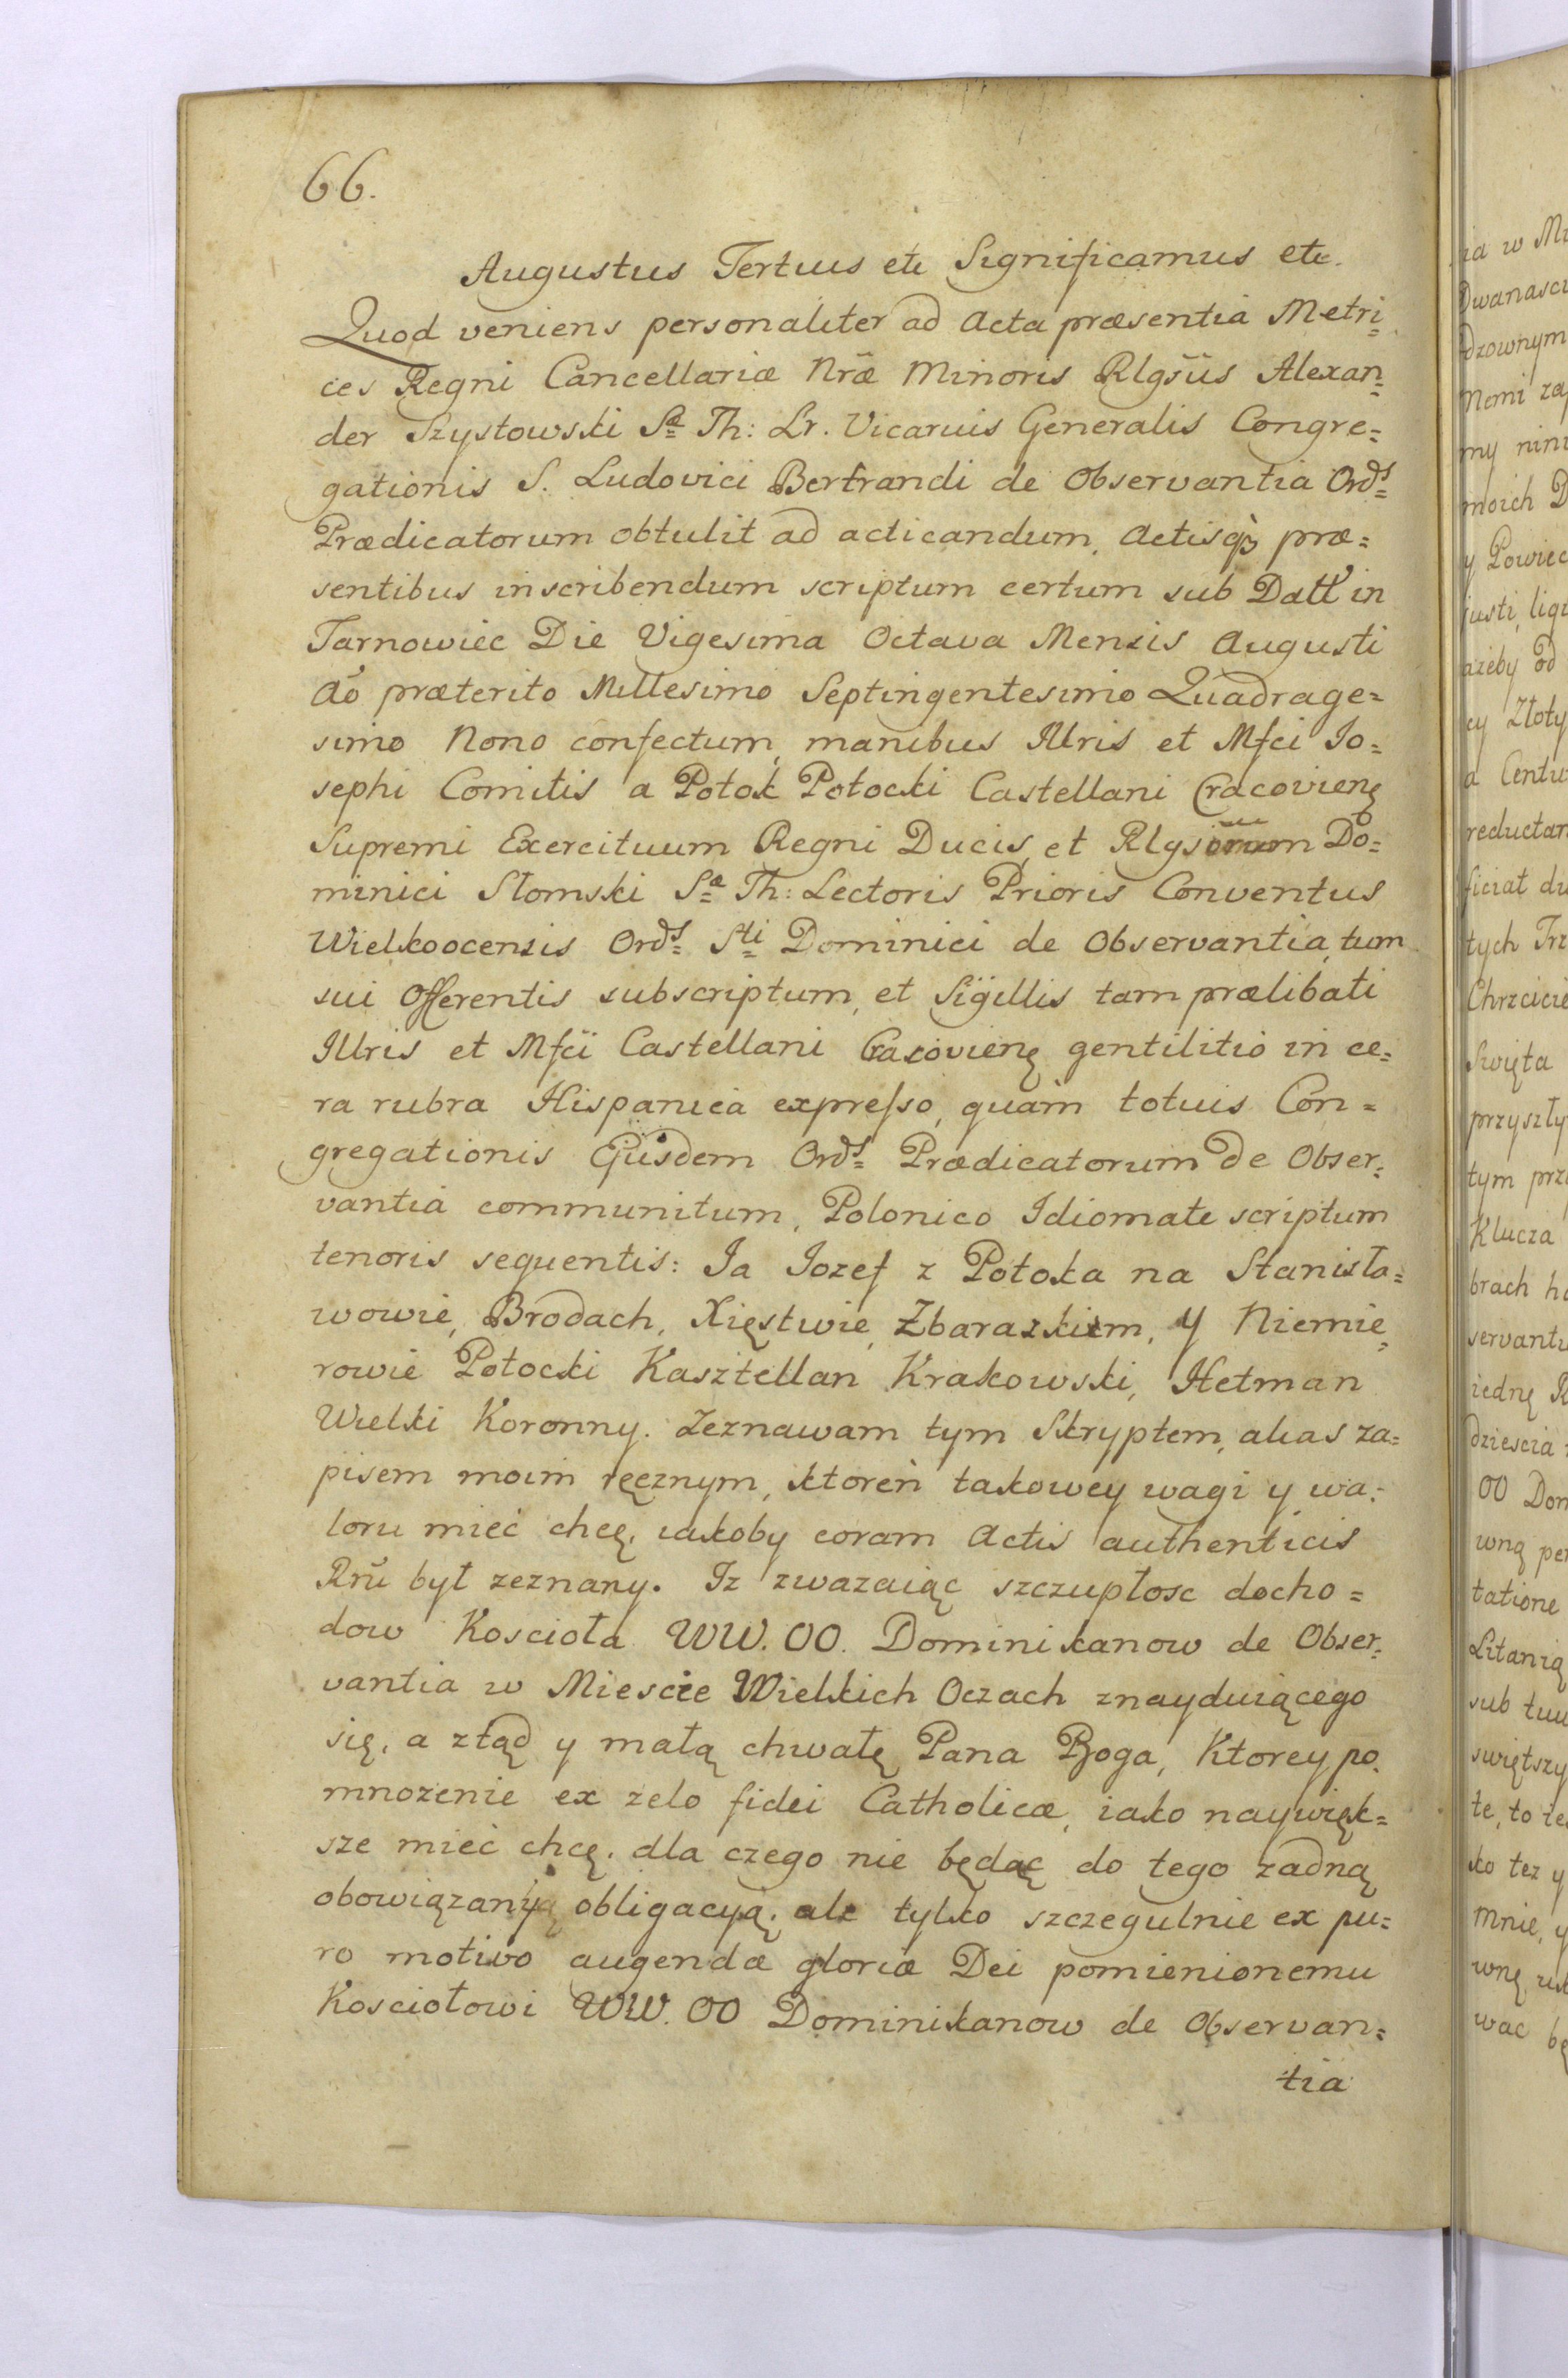 66.
Augustus Tertius etc Significamus etc.
Quod veniens personaliter ad Acta præsentia Metri=
ces Regni Cancellariæ Nræ Minoris Rlgsüs Alexan=
der Szystowski Sæ Th: Lr. Vicarius Generalis Congre=
gationis S. Ludovici Bertrandi de Observantia Ords
Prædicatorum obtulit ad acticandum, Actisq3 præ=
sentibus inscribendum scriptum certum sub Datt in
Tarnowiec Die Vigesima Octava Mensis Augusti
Aō præterito Millesimo Septingentesimo Quadrage=
simo Nono confectum, manibus Illris et Mfci Io=
sephi Comitis a Potok Potocki Castellani Cracovienę
Supremi Exercituum Regni Ducis, et Do=
minici Słomski Sæ Th: Lectoris Prioris Conventus
Wielkoocensis Ords Sti Dominici de Observantia, tum
sui Offerentis subscriptum, et Sigillis tam prælibati
Illris et Mfci Castellani Cracovienę gentilitio in ce=
ra rubra Hispanica expresso, quàm totius Con=
gregationis Ejüsdem Ords Prædicatorum de Obser=
vantia communitum, Polonico Idiomate scriptum
tenoris sequentis: Ja Jozef z Potoka na Stanisła=
wowie, Brodach, Xięstwie Zbarazkim, y Niemie=
rowie Potocki Kasztellan Krakowski, Hetman
Wielki Koronny. Zeznawam tym Skryptem, alias za=
pisem moim ręcznym, ktoren takowey wagi y wa=
loru mieć chcę, iakoby coram Actis authenticis
Rñi był zeznany. Iz zwazaiąc szczupłosc docho=
dow Koscioła WW. OO. Dominikanow de Obser=
vantia w Miescie Wielkich Oczach znayduiącego
się, a ztąd y małą chwałę Pana Boga, Ktorey po=
mnozenie ex zelo fidei Catholicæ, iako naywięk=
sze mieć chcę, dla czego nie będąc do tego zadną
obowiązany obligacyą, ale tylko szczegulnie ex pu=
ro motivo augendæ gloriæ Dei pomienionemu
Kosciołowi WW. OO Dominikanow de Observan=
tia